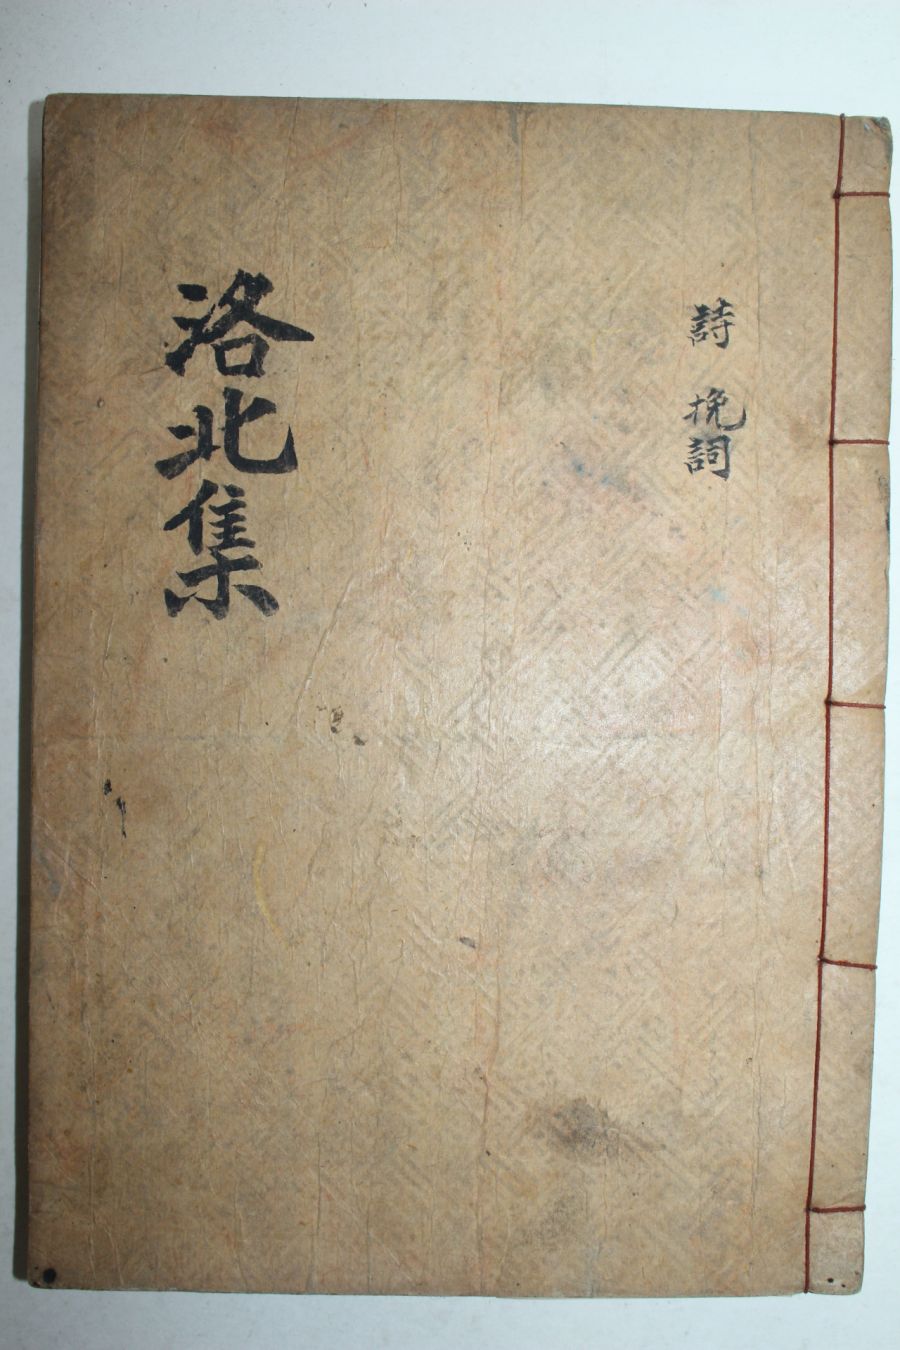 詩 挽詞
洛北集